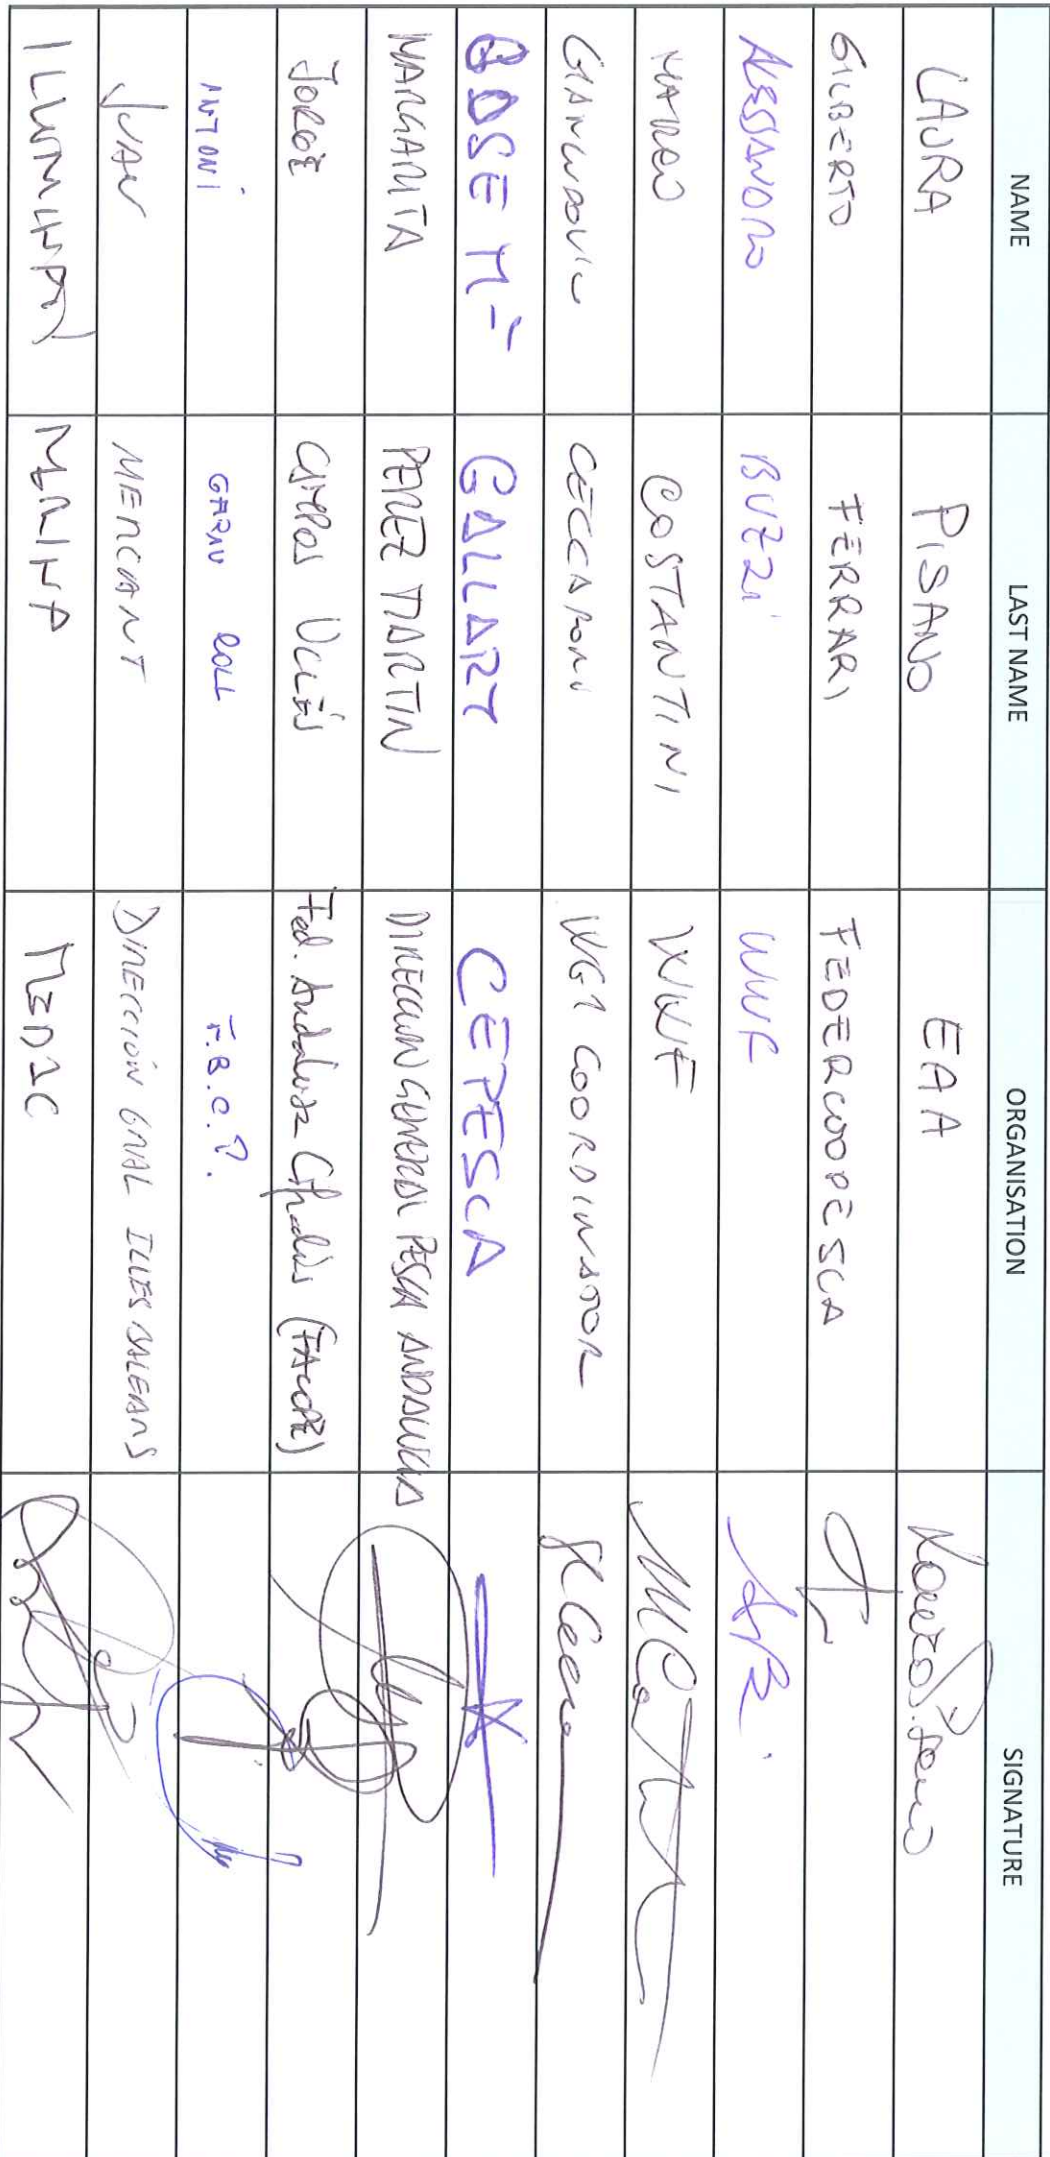 NAME LAST NAME ORGANISATION SIGNATURE
LAURA PISANO EAA
GILBERTO FERRARI FEDERCOOPESCA
ALESSANDRO BUZZI WWF
MARCO COSTANTINI WWF
GIANLUDOVICO CECCARONI WG1 COORDINATOR
JOSE Mª GALLART CEPESCA
MARGARITA PEREZ MARTIN DIRECCION GENERAL PESCA ANDALUCIA
JORGE CAMPOS UCLÉS Fed. Andaluza Cofradías (FACOPE)
ANTONI GARAU COLL F.B.C.P.
JUAN MERCANT DIRECCIÓN GRAL ILLES BALEARS
MERINA MEDAC